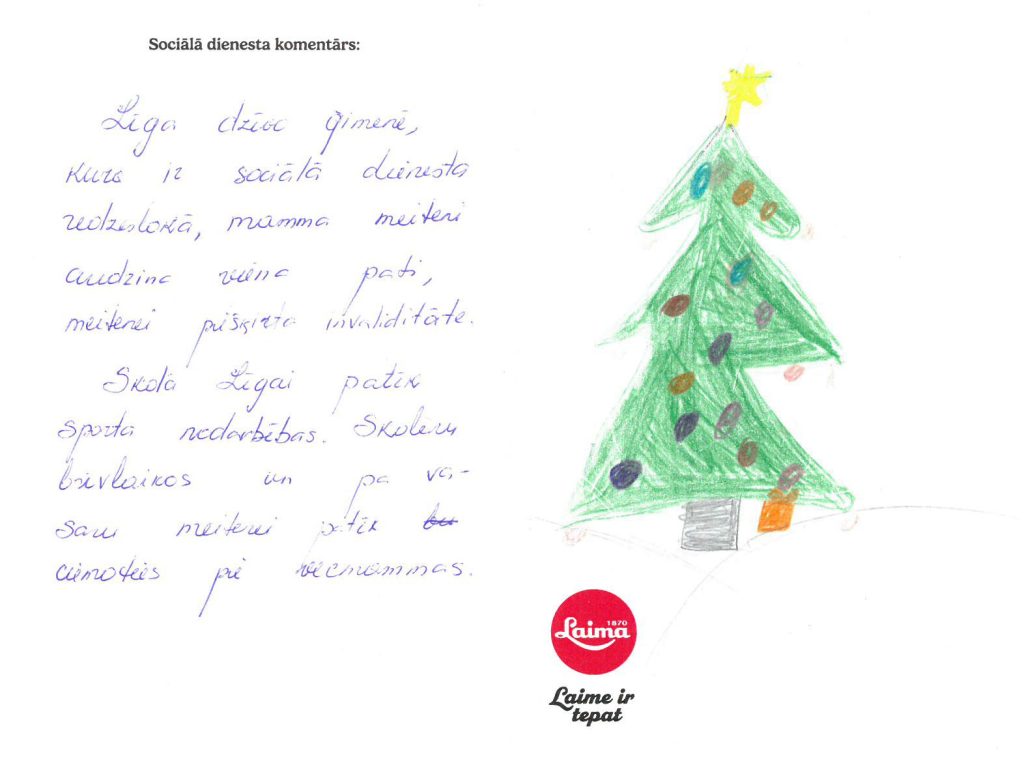 Sociālā dienesta komentārs:
Līga dzīvo ģimenē,
kura ir sociālā dienesta
redzeslokā, mamma meiteni
audzina viena pati,
meitenei piešķirta invaliditāte.
Skolā Līgai patīk
sporta nodarbības. Skolēnu
brīvlaikos un pa va-
saru meitenei patīk
ciemoties pie vecmammas.
1870
Laima
Laime ir
tepat